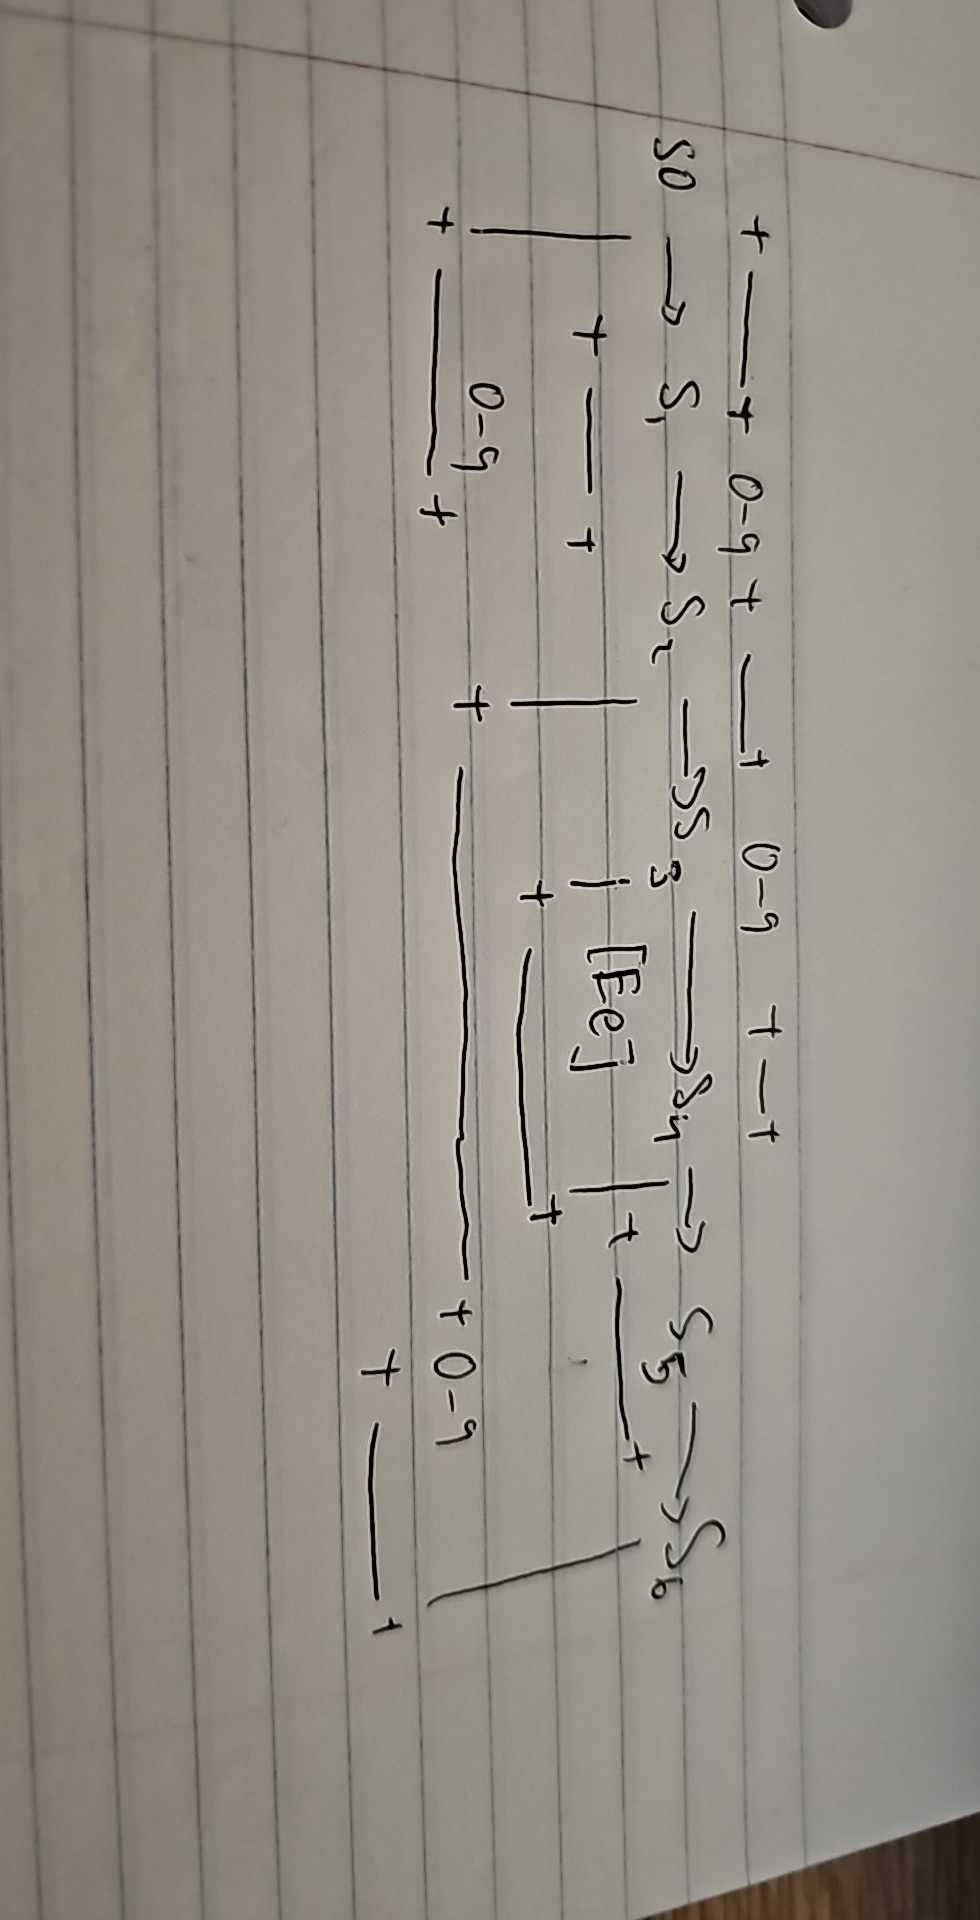 + —— + 0-9 + —— + 0-9 + — +
S0 → S1 → S2 → S3 → S4 → S5 → S6
+ —— + | [Ee] | + —— +
+ —— +
0-9 + —— + 0-9
+ —— + + —— +